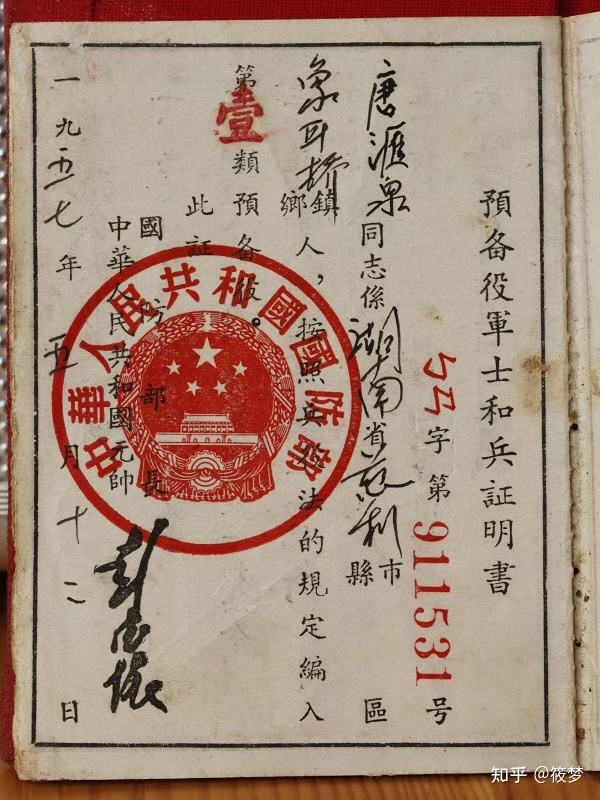 預备役軍士和兵証明書
ㄅㄇ字第911531号
唐滙泉同志係湖南省慈利市縣區
象耳橋鎮鄉人，按照兵役法的規定編入
第壹類預备役。
此証
國防部長
中華人民共和國元帥彭德懷
一九五七年五月十二日
中華人民共和國國防部
知乎 @筱梦